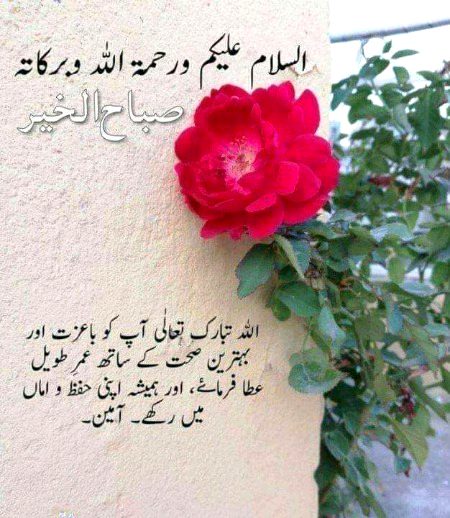 السلام علیکم ورحمة اللہ وبرکاتہ
صباح الخير
اللہ تبارک تعالٰی آپ کو باعزت اور
بہترین صحت کے ساتھ عمرِ طویل
عطا فرمائے، اور ہمیشہ اپنی حفظ و اماں
میں رکھے۔ آمین۔